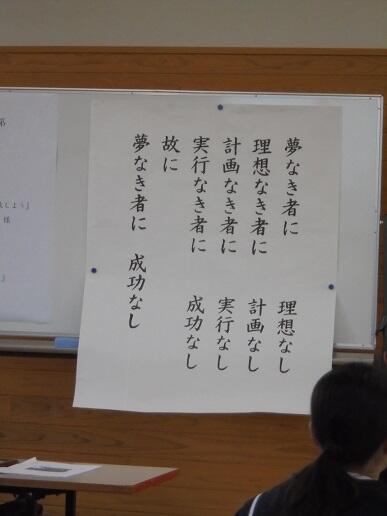 夢なき者に 理想なし
理想なき者に 計画なし
計画なき者に 実行なし
実行なき者に 成功なし
故に
夢なき者に 成功なし
第
様